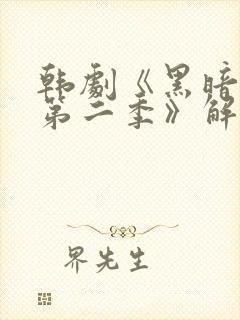 韩劇《黑暗
第二季》解
界先生